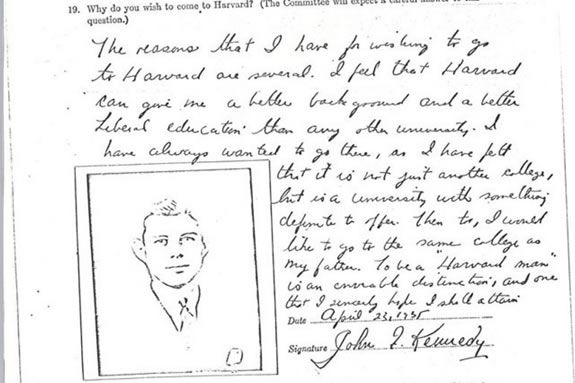 19. Why do you wish to come to Harvard? (The Committee will expect a careful answer to this
question.)
The reasons that I have for wishing to go
to Harvard are several. I feel that Harvard
can give me a better background and a better
liberal education than any other university. I
have always wanted to go there, as I have felt
that it is not just another college,
but is a university with something
definite to offer. Then too, I would
like to go to the same college as
my father. To be a "Harvard man"
is an enviable distinction, and one
that I sincerely hope I shall attain
Date April 23, 1935
Signature John F. Kennedy